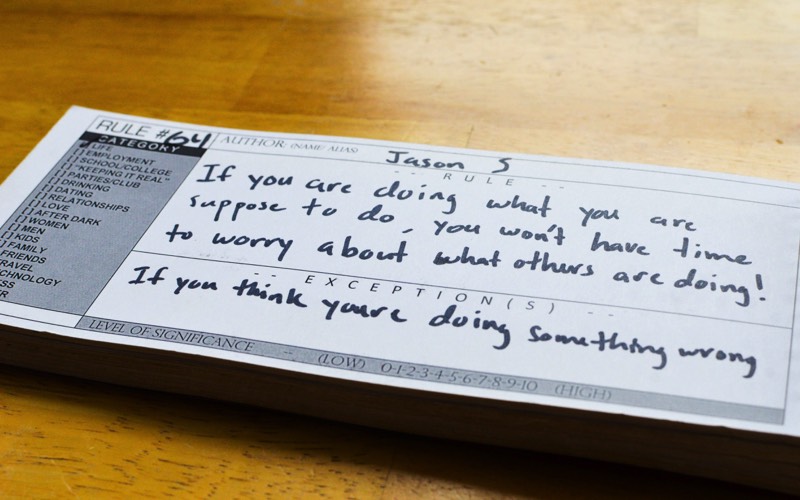 RULE #64
AUTHOR: (NAME/ ALIAS) Jason S
CATEGORY
LIFE
[ ] EMPLOYMENT
[ ] SCHOOL/COLLEGE
[ ] "KEEPING IT REAL"
[ ] PARTIES/CLUB
[ ] DRINKING
[ ] DATING
[ ] RELATIONSHIPS
[ ] LOVE
[ ] AFTER DARK
[ ] WOMEN
[ ] MEN
[ ] KIDS
FAMILY
FRIENDS
-- RULE --
If you are doing what you are
suppose to do, you won't have time
to worry about what others are doing!
-- EXCEPTION(S) --
If you think youre doing something wrong
LEVEL OF SIGNIFICANCE -- (LOW) 0-1-2-3-4-5-6-7-8-9-10 (HIGH)